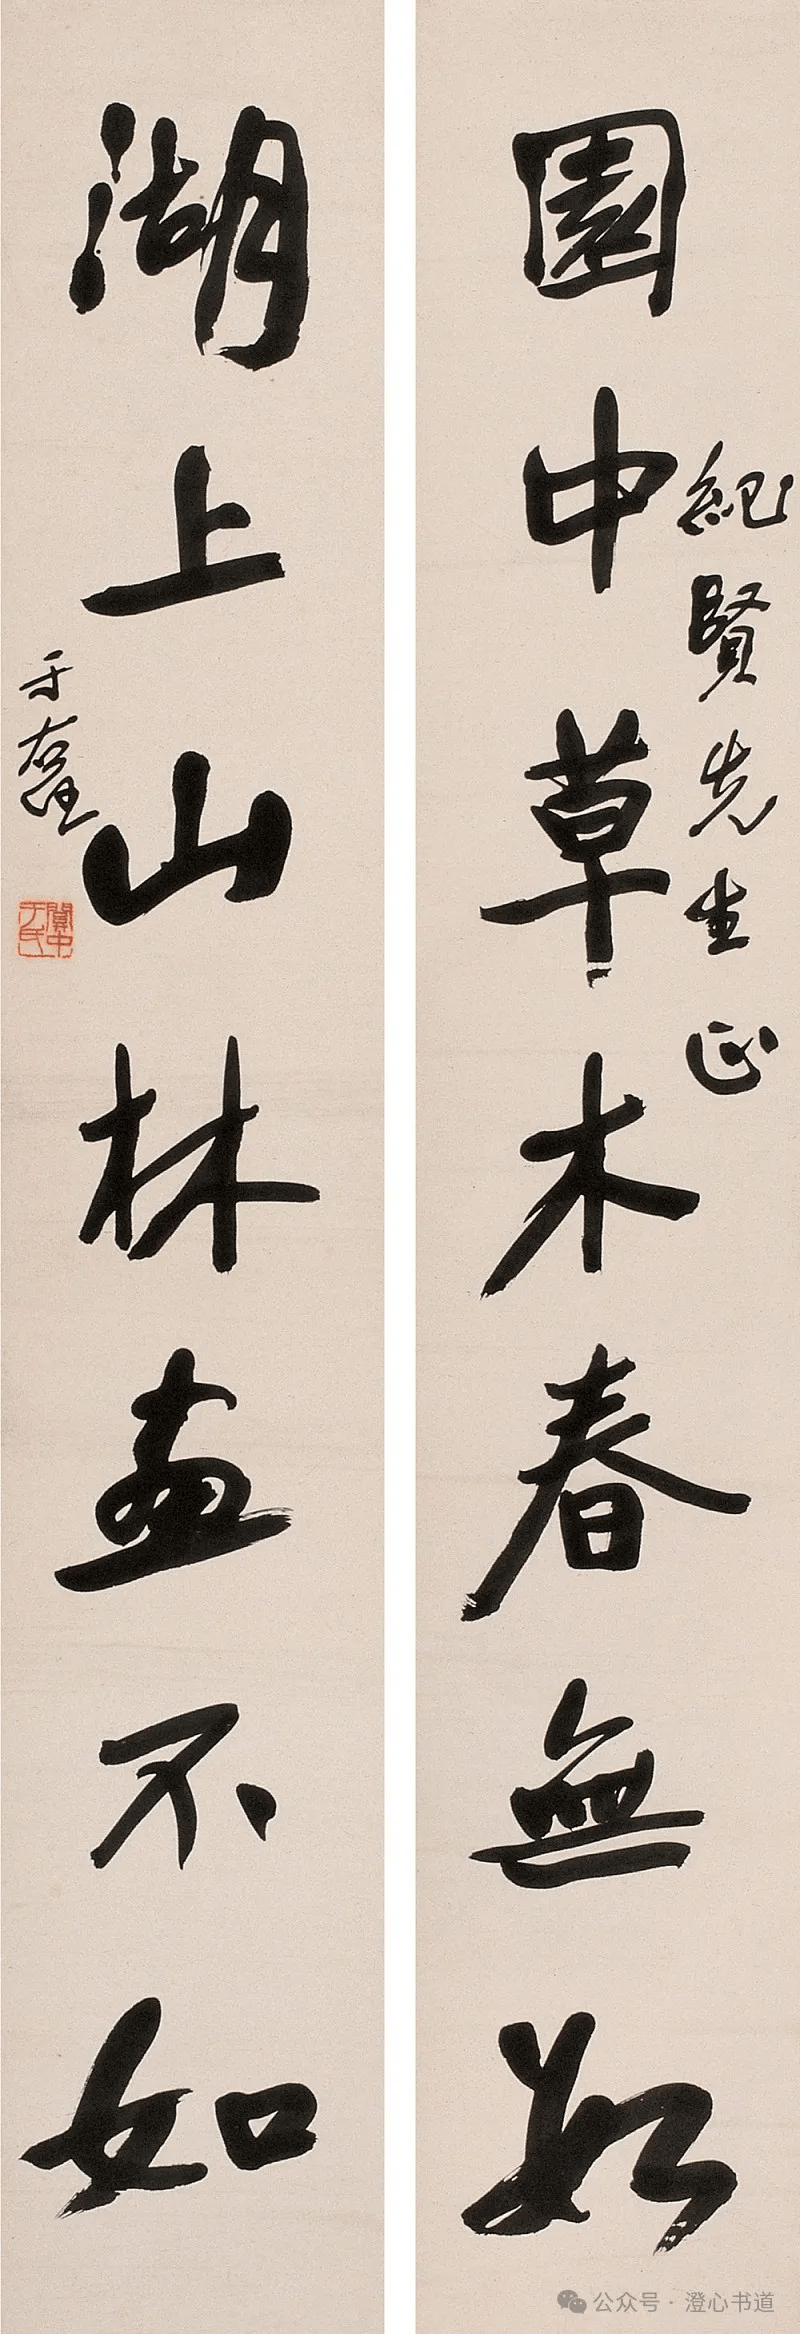 紀賢先生正
園中草木春無數
湖上山林畫不如
于右任
關中于氏
公众号·澄心书道